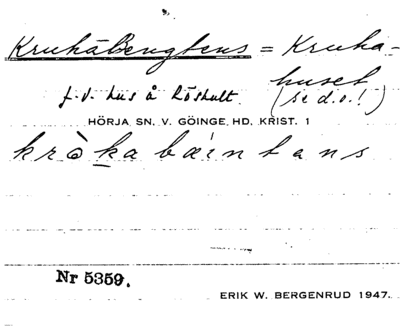 KrukaBengtens = Kruka-
huset
f.d. hus å Röshult. (se d.o.!)
HÖRJA SN. V. GÖINGE HD. KRIST. 1
kròka bæintans
Nr 5359.
ERIK W. BERGENRUD 1947.